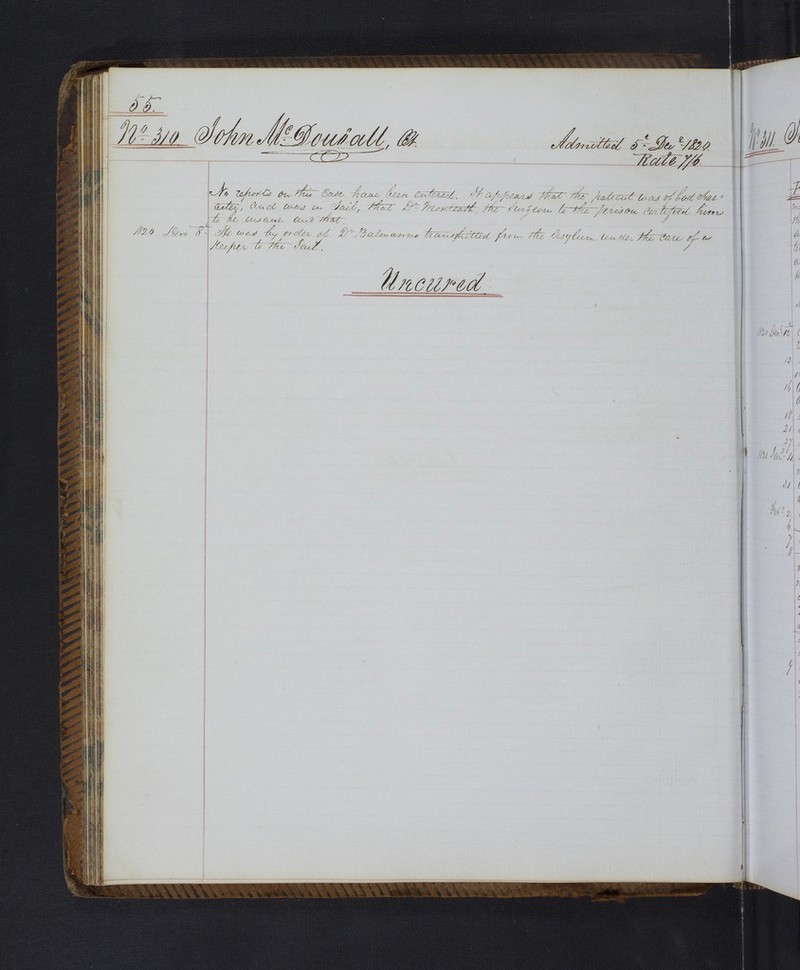 55.
No. 310 John McDougall, Admitted 5th Decr. 1820
Rate 7/6.
No reports on this case have been entered. It appears that the patient was of bad char-
acter, and was in Jail, that Dr. Monteath, the Surgeon to the prison certified him
to be insane and that
1820 Decr. 5th He was by order of Dr. Balmanno transmitted from the Asylum under the care of a
Keeper to the Jail.
Uncured.
No. 311
1820 Decr. 12
13
16
18
21
27
1821 Jany. 4
31
Feby. 2
6
7
8
9